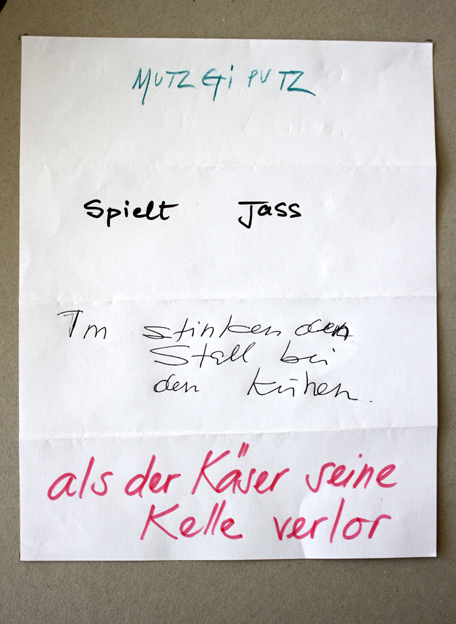 MUTZGiPUTZ
Spielt Jass
Im stinkenden
Stall bei
den Kühen.
als der Käser seine
Kelle verlor